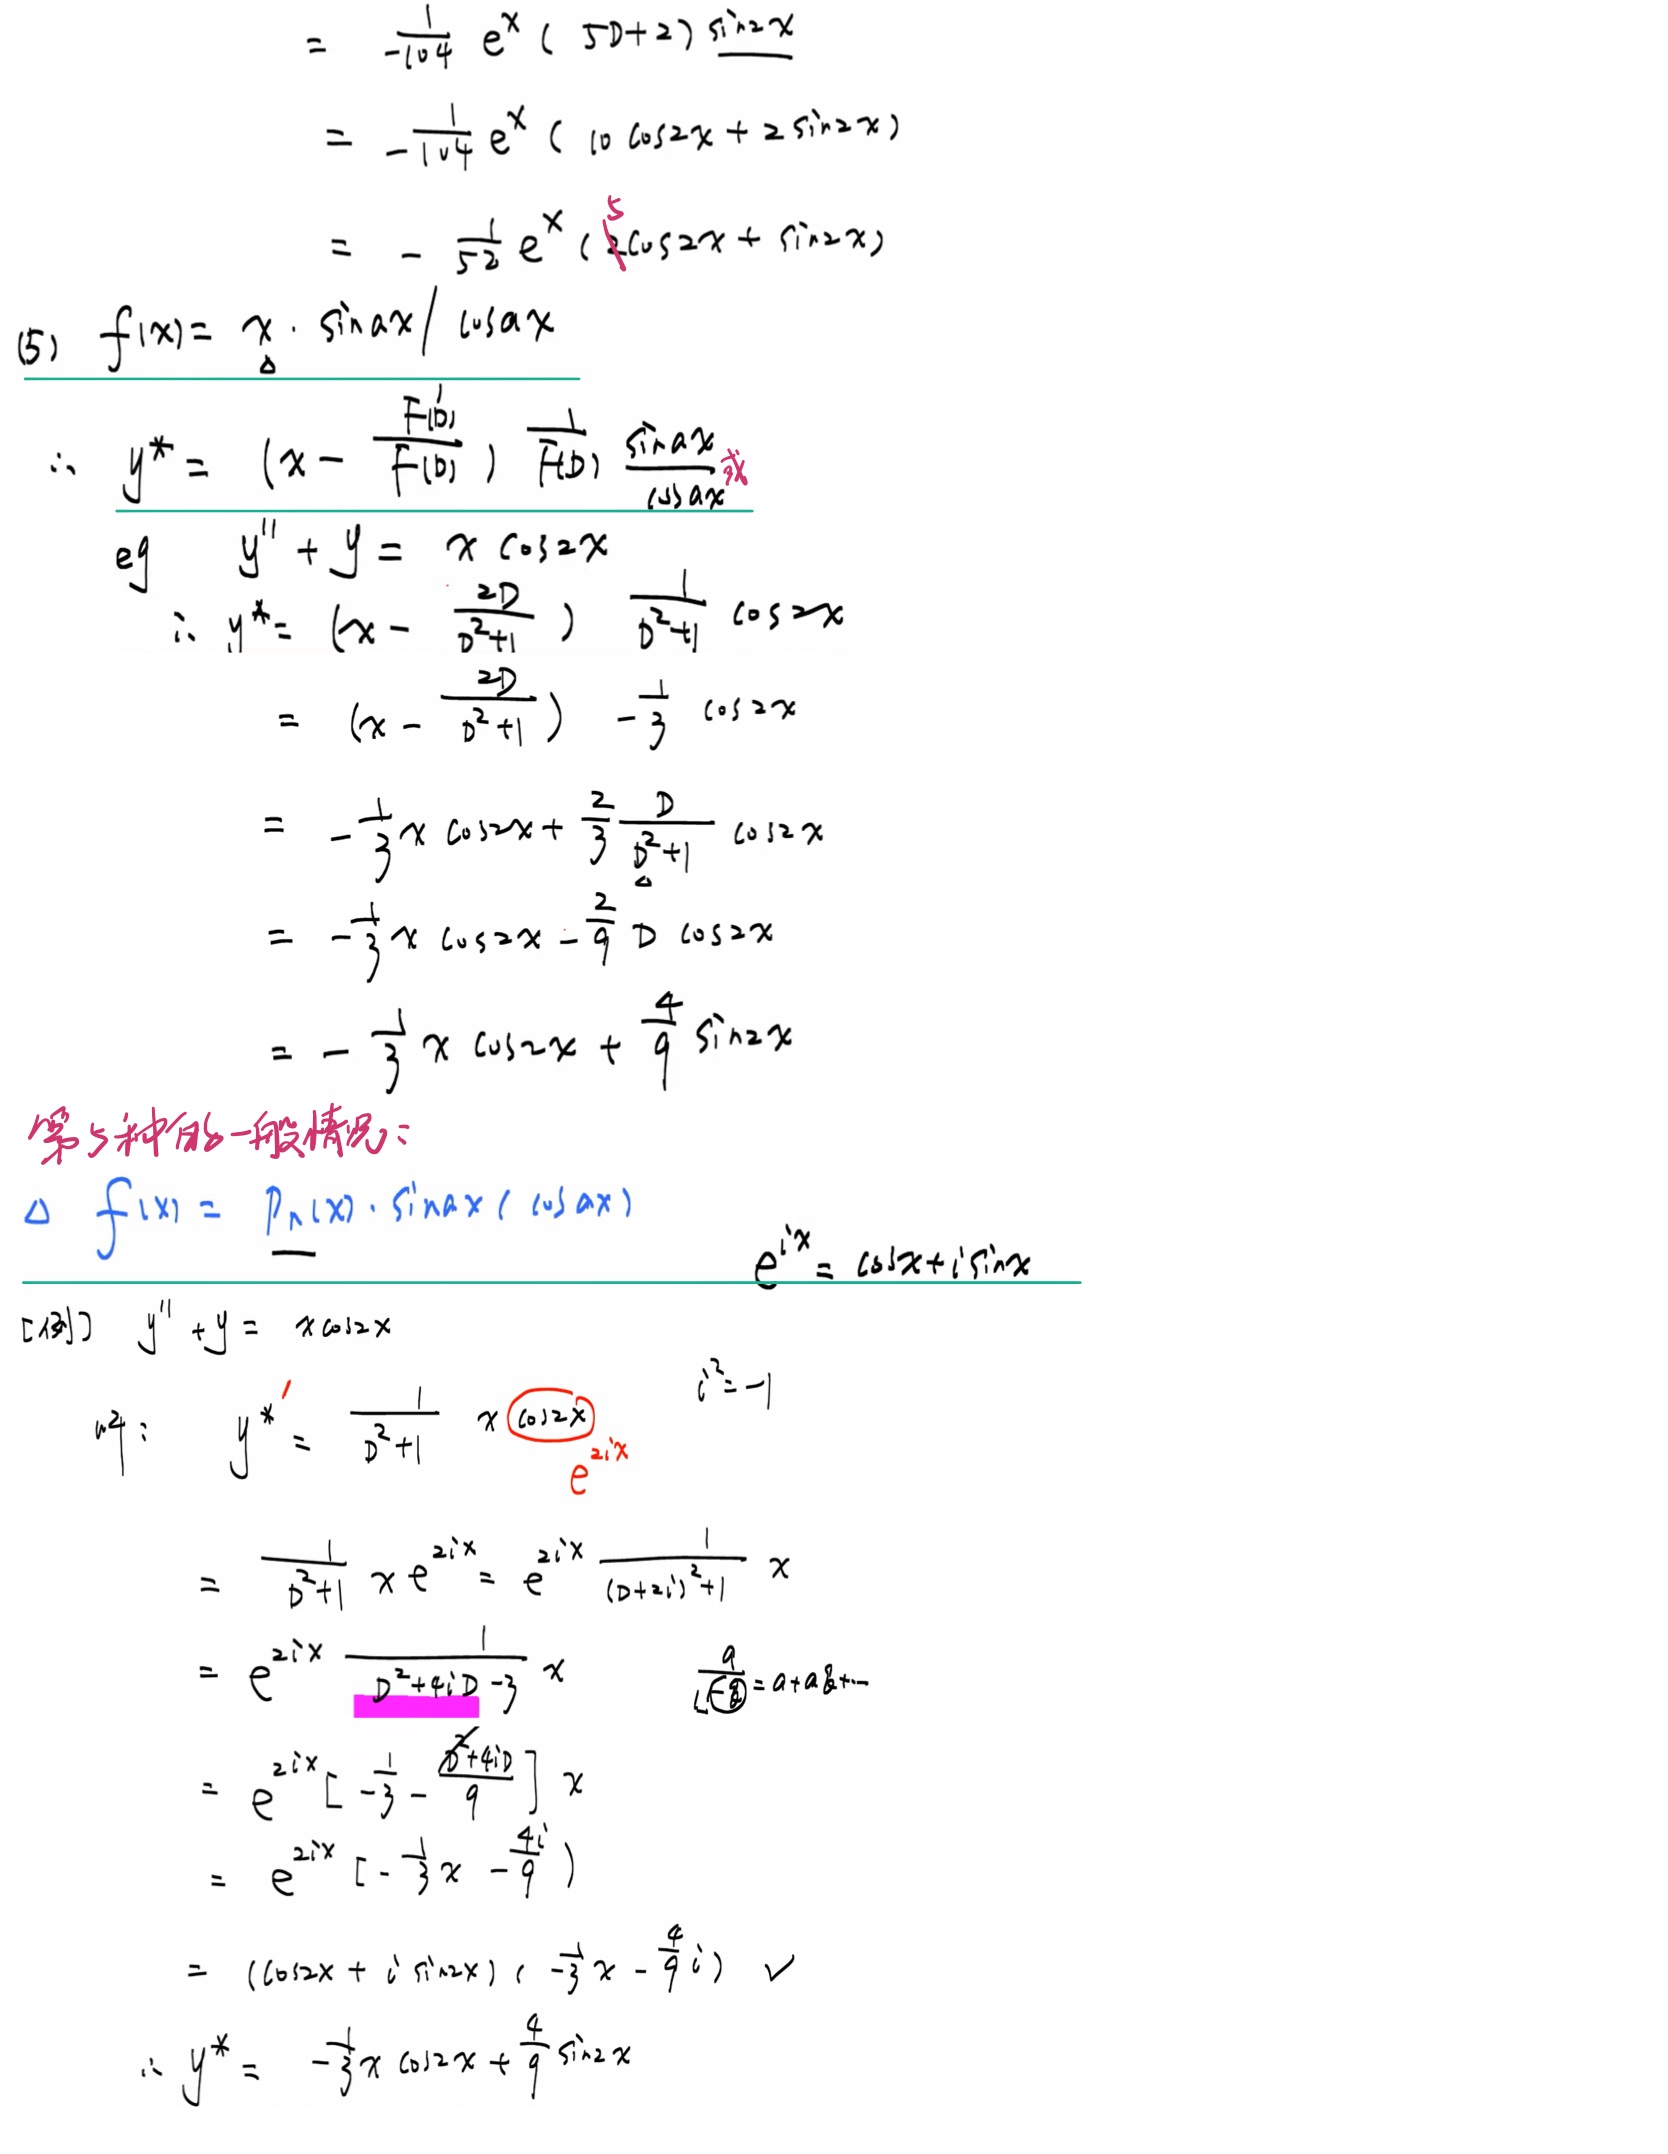 = 1/-104 e^x ( 5D+2) sin2x
= -1/104 e^x ( 10 cos2x + 2 sin2x)
= - 1/52 e^x ( 5 cos2x + sin2x)
(5) f(x) = x · sinax / cosax
∴ y* = (x - F'(D)/F(D)) 1/F(D) sinax/cosax 或
eg y'' + y = x cos2x
∴ y* = (x - 2D/(D²+1)) 1/(D²+1) cos2x
= (x - 2D/(D²+1)) -1/3 cos2x
= -1/3 x cos2x + 2/3 D/(D²+1) cos2x
= -1/3 x cos2x - 2/9 D cos2x
= - 1/3 x cos2x + 4/9 sin2x
第5种的一般情况:
△ f(x) = Pn(x) · sinax ( cosax)
e^ix = cosx + i sinx
[例] y'' + y = x cos2x
i² = -1
解: y*' = 1/(D²+1) x cos2x
e^2ix
= 1/(D²+1) x e^2ix = e^2ix 1/((D+2i)²+1) x
= e^2ix 1/(D²+4iD-3) x
= a + aq + ···
= e^2ix [ -1/3 - (D²+4iD)/9 ] x
= e^2ix [ -1/3 x - 4i/9 )
= (cos2x + i sin2x) ( -1/3 x - 4/9 i) ✓
∴ y* = -1/3 x cos2x + 4/9 sin2x